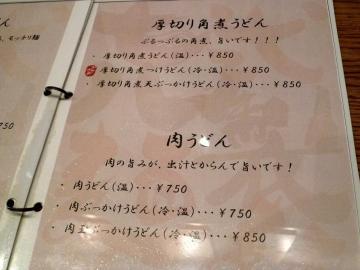 モッチリ麺
50
厚切り角煮うどん
ぷるっぷるの角煮、旨いです!!!
・厚切り角煮うどん(温)・・・¥850
厚切り角煮つけうどん(冷・温)・・・¥850
・厚切り角煮天ぶっかけうどん(冷・温)・・・¥850
肉うどん
肉の旨みが、出汁とからんで旨いです!
・肉うどん(温)・・・¥750
・肉ぶっかけうどん(冷・温)・・・¥750
・肉玉ぶっかけうどん(冷・温)・・・¥850